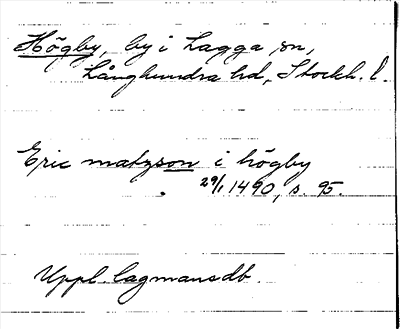 Högby, by i Lagga sn,
Långhundra hd, Stockh. l.
Eric matzson i högby
29/1 1490, s. 95.
Uppl. lagmansdb.